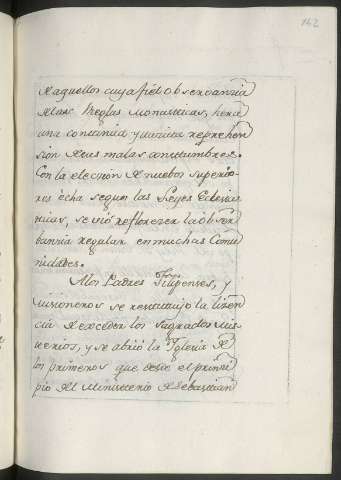 142
de aquellos cuya fiel observanzia
de las Reglas Monasticas, hera
una continua y tacita reprehen
sion de sus malas constumbres.
Con la eleccion de nuebos superio-
res echa segun las Leyes Eclesias
ticas, se vió reflorezer la obser
banzia regular en muchas Comu
nidades.
A los Padres Felipenses, y
Misioneros se restituyo la lizen
cia de exceder los sagrados Mis
terios, y se abrió la Yglesia de
los primeros que desde el prinzi
pio del Ministerio de Sebastian